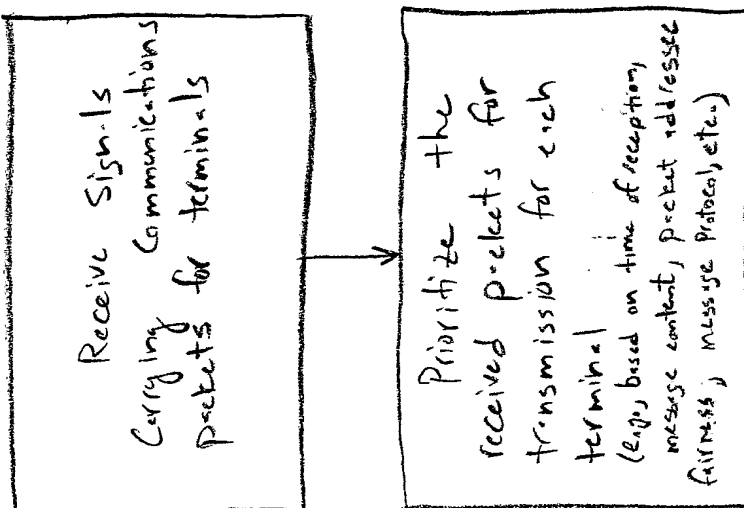 Receive Signals
Carrying Communications
packets for terminals
Prioritize the
received packets for
transmission for each
terminal
(e.g., based on time of reception,
message content, packet addressee
fairness, message Protocol, etc.)